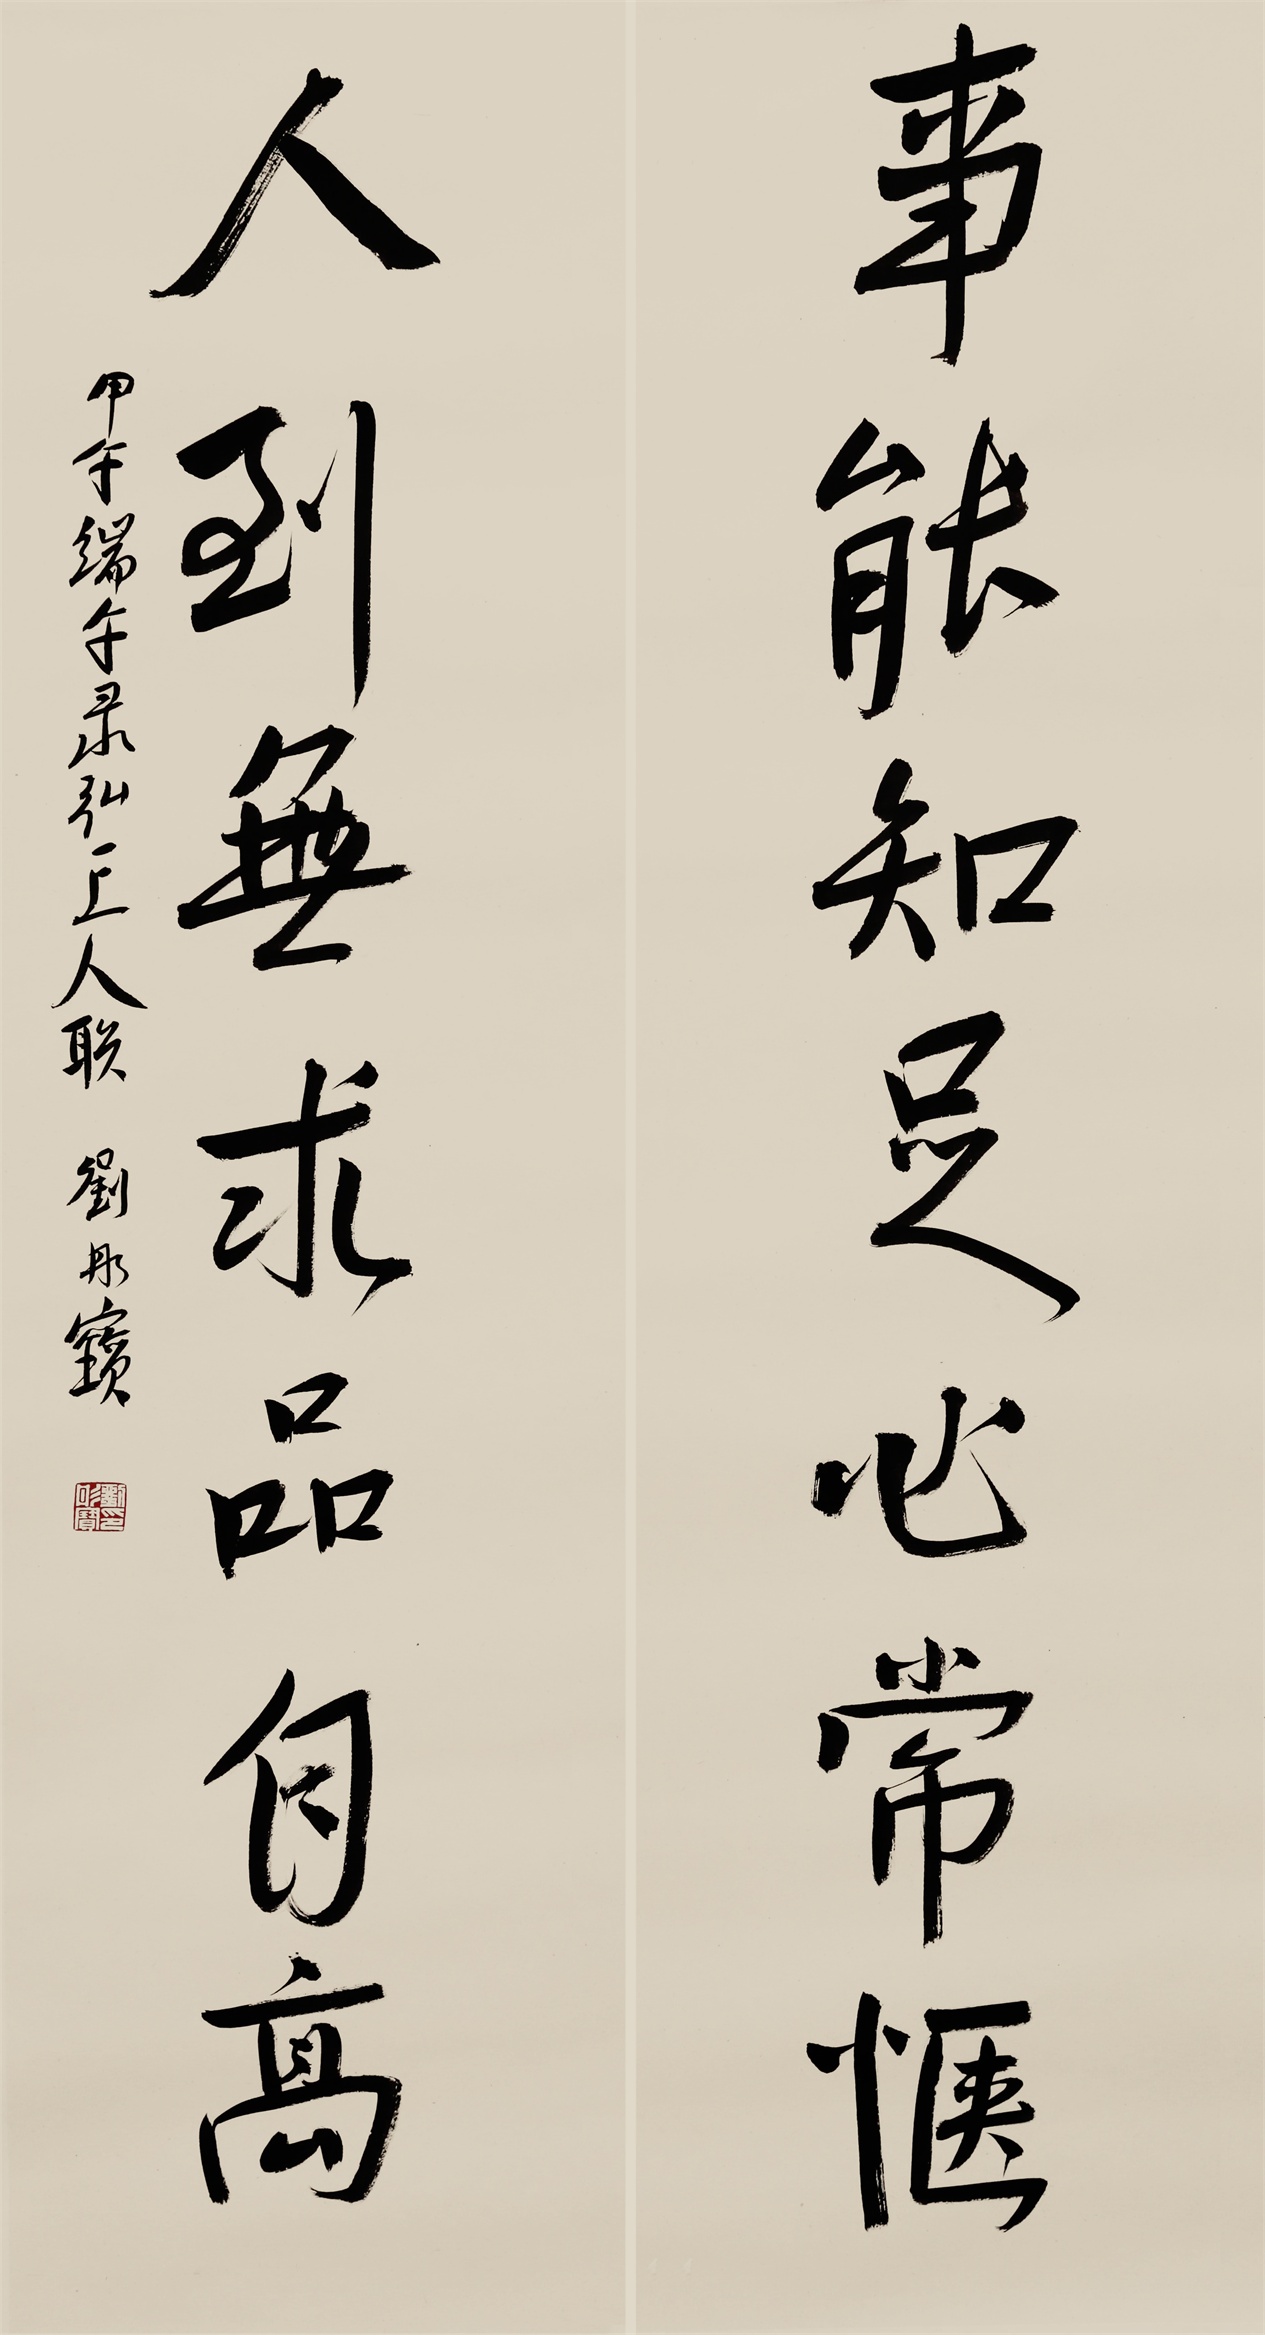 事能知足心常惬
人到無求品自高
甲午端午录弘一上人联 劉彤寶
劉彤寶印